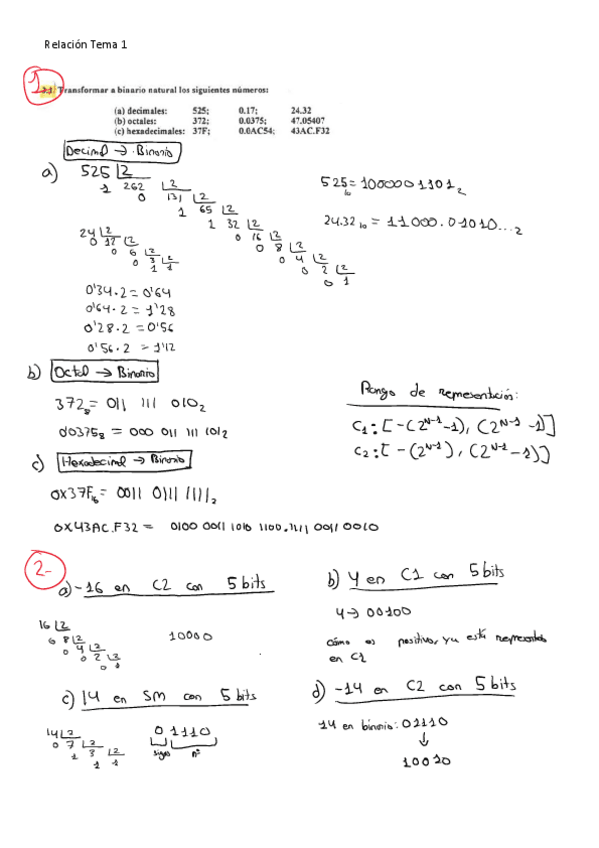 Relación Tema 1
1.
Transformar a binario natural los siguientes números:
(a) decimales: 525; 0.17; 24.32
(b) octales: 372; 0.0375; 47.05407
(c) hexadecimales: 37F; 0.0AC54; 43AC.F32
Decimal → Binario
a) 525 |2
1 262 |2
0 131 |2
1 65 |2
1 32 |2
0 16 |2
0 8 |2
0 4 |2
0 2 |2
0 1
525₁₀ = 1000001101₂
24.32₁₀ = 11000.01010...₂
24 |2
0 12 |2
0 6 |2
0 3 |2
1 1
0'34·2 = 0'64
0'64·2 = 1'28
0'28·2 = 0'56
0'56·2 = 1'12
b) Octal → Binario
372₈ = 011 111 010₂
0'0375₈ = 000 011 111 101₂
c) Hexadecimal → Binario
0x37F₁₆ = 0011 0111 1111₂
0X43AC.F32 = 0100 0011 1010 1100.1111 0011 0010
Rango de representación:
C1: [-(2ᴺ⁻¹-1), (2ᴺ⁻¹-1)]
C2: [-(2ᴺ⁻¹), (2ᴺ⁻¹-1)]
2-
a) -16 en C2 con 5 bits
16 |2
0 8 |2
0 4 |2
0 2 |2
0 1
10000
b) 4 en C1 con 5 bits
4 → 00100
cómo es positivo, ya está representado
en C1
c) 14 en SM con 5 bits
14 |2
0 7 |2
1 3 |2
1 1
0 1110
signo nº
d) -14 en C2 con 5 bits
14 en binario: 01110
↓
10010